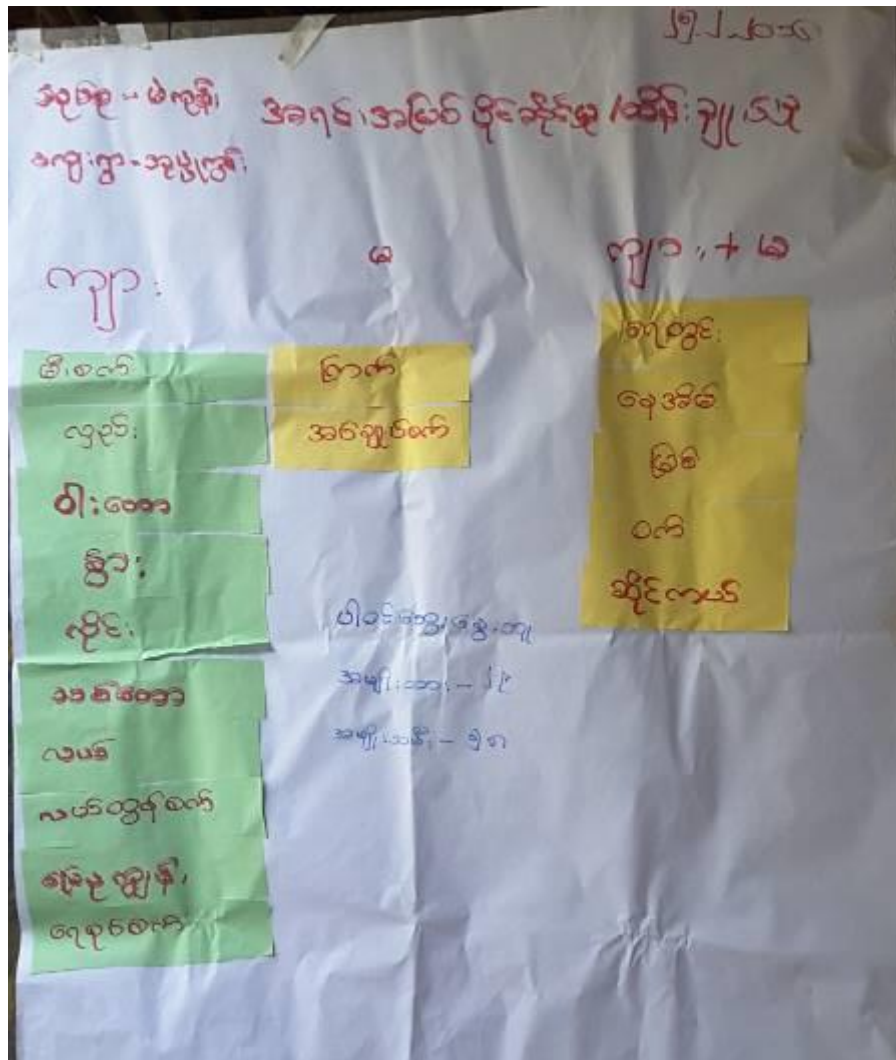 ၂၅.၂.၂၀၁၆
အုပ်စု - မဲကုန်း
အရင်းအမြစ် ပိုင်ဆိုင်မှု / ထိန်းချုပ်မှု
ကျေးရွာ -
ကျား
မ
ကျား + မ
မီးစက်
လှည်း
ဝါးတော
နွား
လှိုင်း
သစ်တော
လယ်
လယ်ထွန်စက်
မြေ
ရေစုပ်စက်
ကြက်
အပ်ချုပ်စက်
ရေတွင်း
နေအိမ်
ခြံ
ဝက်
ဆိုင်ကယ်
ပါဝင်ဆွေးနွေးသူ
အမျိုးသား -
အမျိုးသမီး -